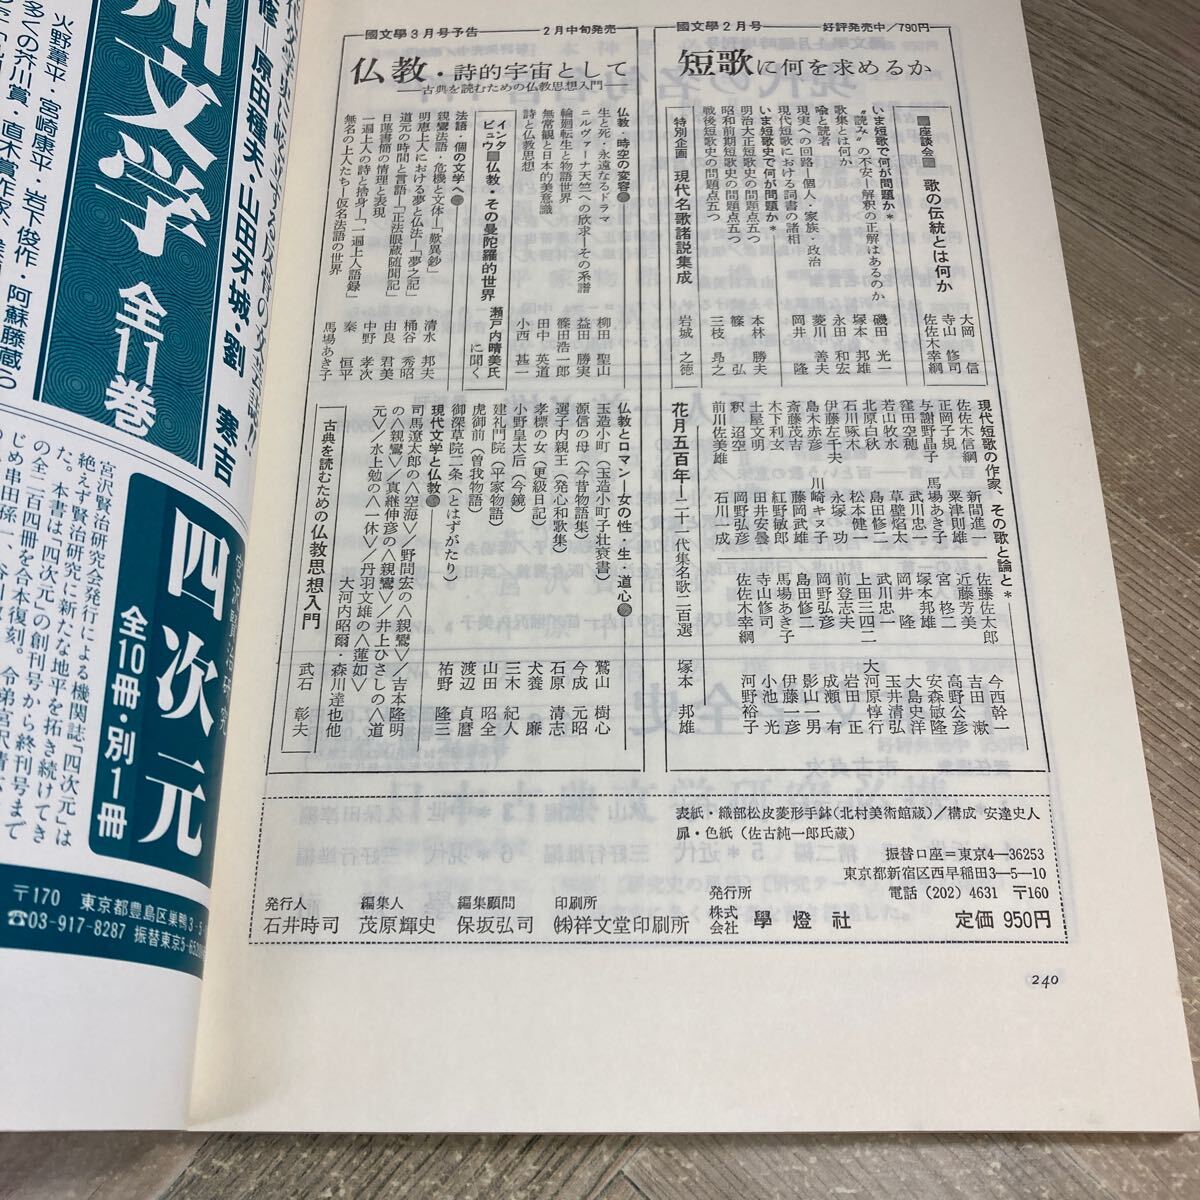 國文學2月号
好評発売中/790円
短歌に何を求めるか
■座談会■ 歌の伝統とは何か
大岡 信
寺山 修司
佐佐木幸綱
いま短歌で何が問題か*
“読み”の不安―解釈の正解はあるのか
磯田 光一
歌集とは何か
塚本 邦雄
喩と読者
永田 和宏
現実への回路―個人・家族・政治
菱川 善夫
現代短歌における詞書の諸相
岡井 隆
いま短歌史で何が問題か*
明治大正短歌史の問題点五つ
本林 勝夫
昭和前期短歌史の問題点五つ
篠 弘
戦後短歌史の問題点五つ
三枝 昻之
特別企画 現代名歌諸説集成
岩城 之徳
現代短歌の作家、その歌と論と*
佐佐木信綱
新間進一
正岡子規
粟津則雄
与謝野晶子
馬場あき子
窪田空穂
武川忠一
若山牧水
草壁焰太
北原白秋
島田修二
石川啄木
松本健一
伊藤左千夫
永塚 功
島木赤彦
川崎キヌ子
斎藤茂吉
藤岡武雄
木下利玄
紅野敏郎
土屋文明
田井安曇
釈 迢空
岡野弘彦
前川佐美雄
石川一成
佐藤佐太郎
今西幹一
近藤芳美
吉田 漱
宮 柊二
高野公彦
塚本邦雄
安森敏隆
岡井 隆
大島史洋
武川忠一
玉井清弘
上田三四二
大河原惇行
前登志夫
岩田 正
岡野弘彦
成瀬 有
島田修二
影山一男
馬場あき子
伊藤一彦
寺山修司
小池 光
佐佐木幸綱
河野裕子
花月五百年―二十一代集名歌二百選
塚本 邦雄
國文學3月号予告
2月中旬発売
仏教・詩的宇宙として
―古典を読むための仏教思想入門―
仏教・時空の変容●
生と死・永遠なるドラマ
柳田 聖山
ニルヴァーナ天竺への欣求―その系譜
益田 勝実
輪廻転生と物語世界
篠田浩一郎
無常観と日本的美意識
田中 英道
詩と仏教思想
小西 甚一
インタビュウ■仏教・その曼陀羅的世界
瀬戸内晴美氏に聞く
法語・個の文学へ●
親鸞法語・危機と文体―「歎異鈔」
清水 邦夫
明恵上人における夢と仏法―「夢之記」
桶谷 秀昭
道元の時間と言語―「正法眼蔵随聞記」
由良 君美
日蓮書簡の情理と表現
中野 孝次
一遍上人の詩と捨身―「一遍上人語録」
秦 恒平
無名の上人たち―仮名法語の世界
馬場あき子
仏教とロマン―女の性・生・道心●
玉造小町(玉造小町子壮衰書)
鷲山 樹心
源信の母(今昔物語集)
今成 元昭
選子内親王(発心和歌集)
石原 清志
孝標の女(更級日記)
犬養 廉
小野皇太后(今鏡)
三木 紀人
建礼門院(平家物語)
山田 昭全
虎御前(曽我物語)
渡辺 貞麿
御深草院二条(とはずがたり)
祐野 隆三
現代文学と仏教●
司馬遼太郎の〈空海〉/野間宏の〈親鸞〉/吉本隆明
の〈親鸞〉/真継伸彦の〈親鸞〉/井上ひさしの〈道
元〉/水上勉の〈一休〉/丹羽文雄の〈蓮如〉
大河内昭爾・森川達也他
古典を読むための仏教思想入門
武石 彰夫
表紙・織部松皮菱形手鉢(北村美術館蔵)/構成 安達史人
扉・色紙(佐古純一郎氏蔵)
振替口座=東京4―36253
東京都新宿区西早稲田3―5―10
電話(202)4631 〒160
発行人
石井時司
編集人
茂原輝史
編集顧問
保坂弘司
印刷所
㈱祥文堂印刷所
発行所
株式会社 學燈社
定価 950円
240
州文学 全11巻
修=原田種夫・山田牙城・劉 寒吉
火野葦平・宮崎康平・岩下俊作・阿蘇藤蔵
四次元
全10冊・別1冊
宮沢賢治研究
宮沢賢治研究会発行による機関誌「四次元」は
絶えず賢治研究に新たな地平を拓き続けてき
た。本書は「四次元」の創刊号から終刊号まで
の全二百四冊を合本復刻。令弟・宮沢清
〒170 東京都豊島区巣鴨3-5
☎03-917-8287 振替東京5-6520